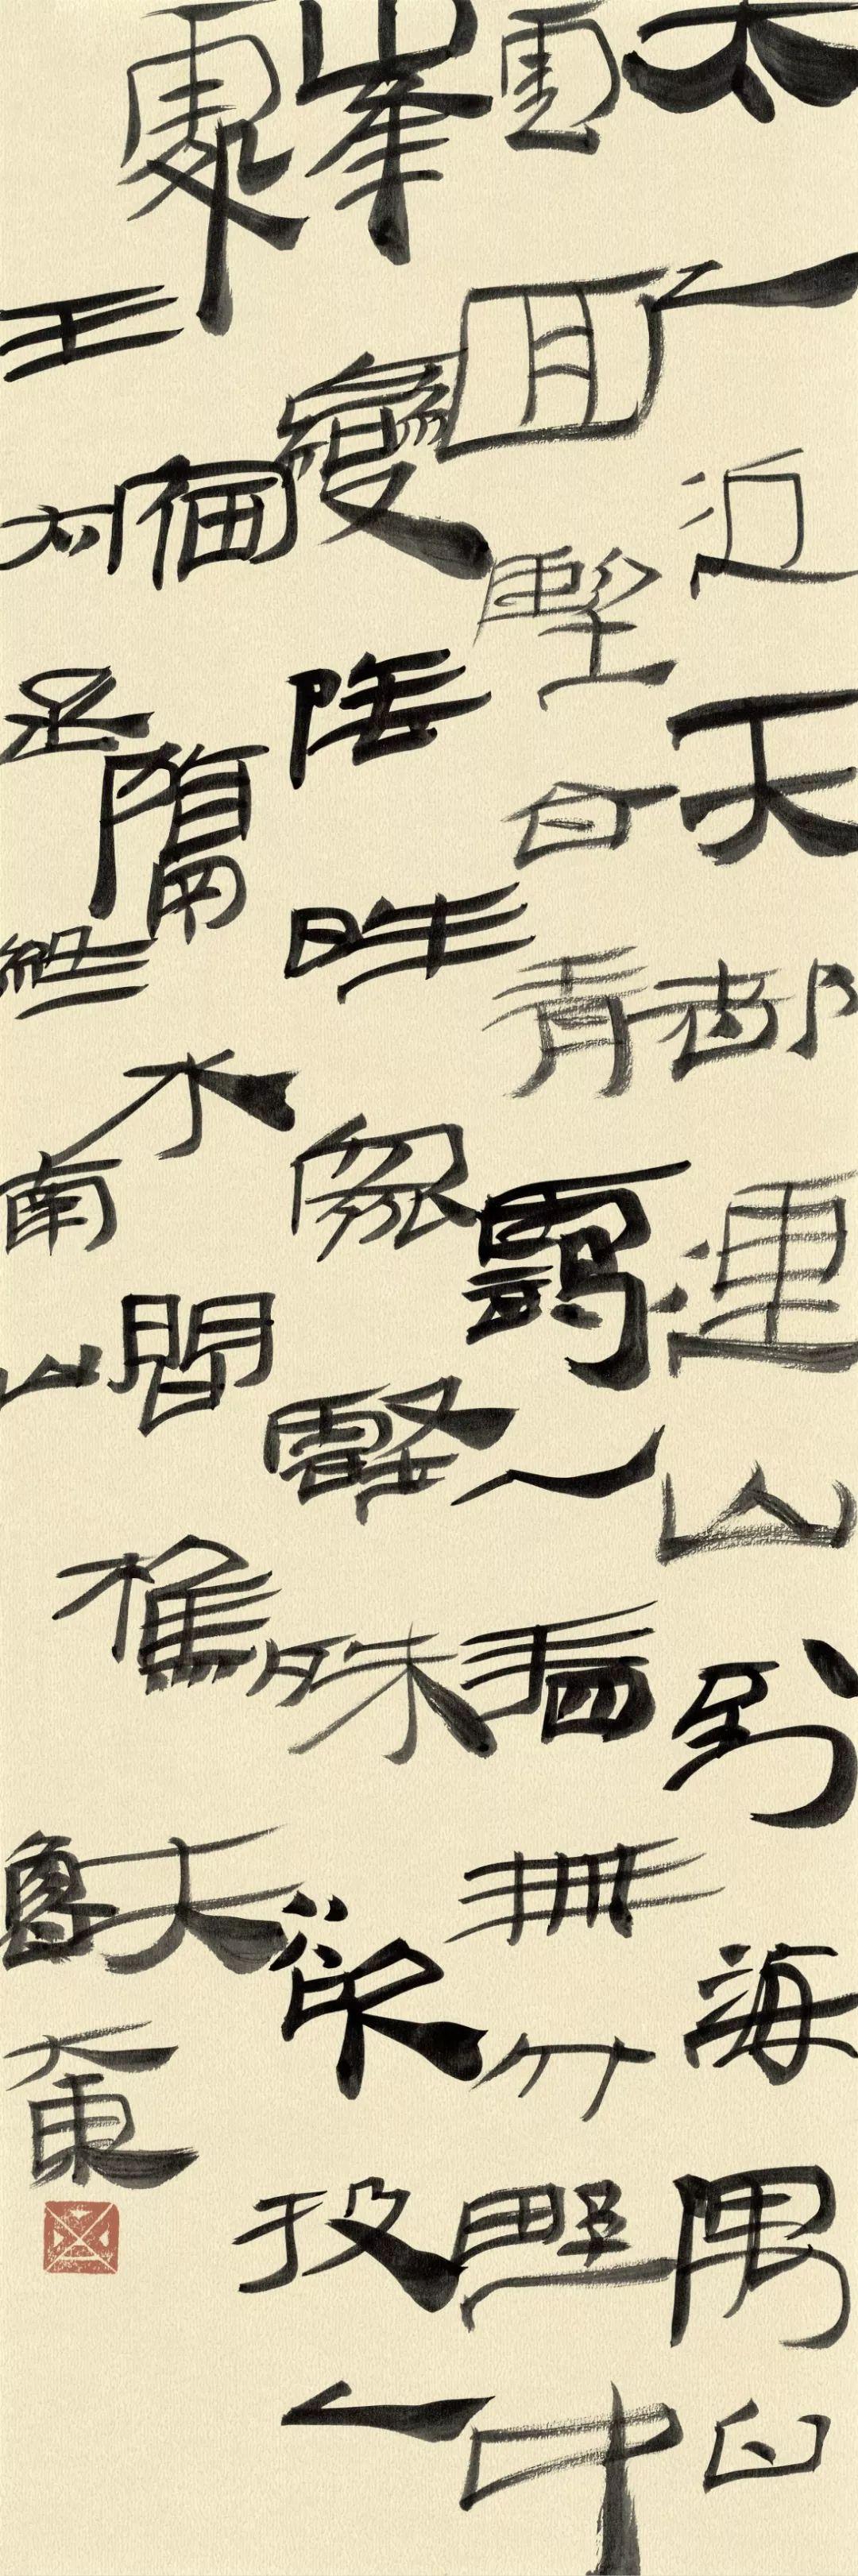 太乙近天都連山到海隅白
雲回望合青靄入看無分野中
峯變陰晴眾壑殊欲投人
處宿隔水問樵夫
王終南山